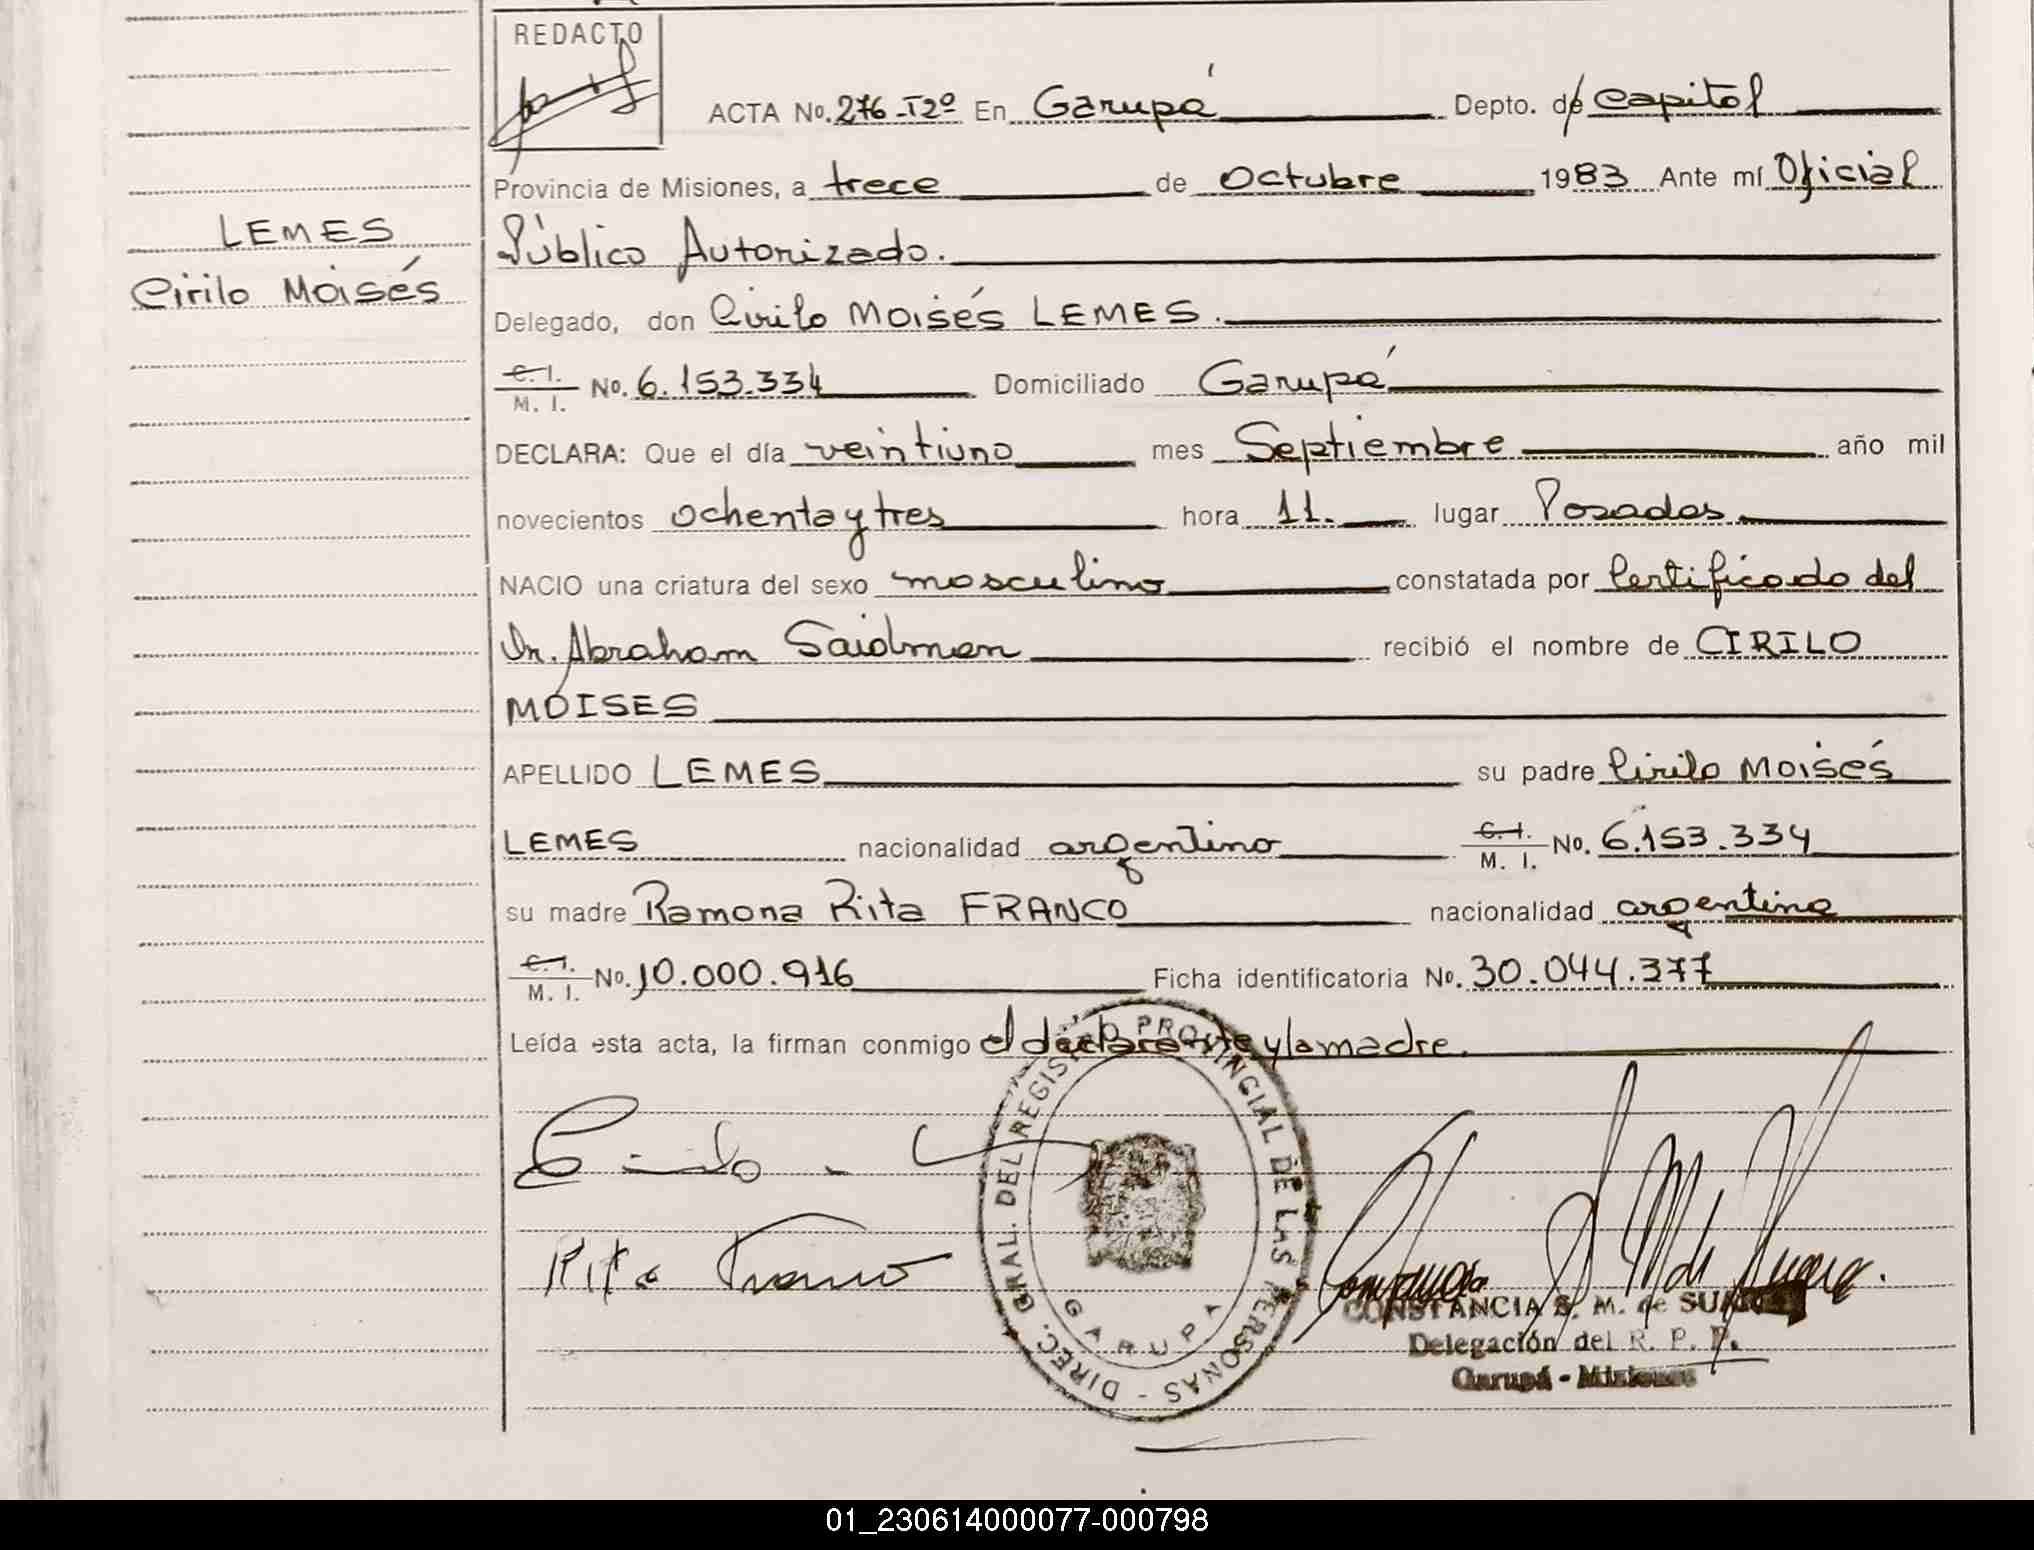 REDACTO
ACTA No. 276-Tº2º En Garupá Depto. de Capital
Provincia de Misiones, a trece de Octubre 1983 Ante mí Oficial
Público Autorizado.
LEMES
Cirilo Moisés
Delegado, don Cirilo Moisés LEMES.
C. I.
M. I. No. 6.153.334 Domiciliado Garupá
DECLARA: Que el día veintiuno mes Septiembre año mil
novecientos ochenta y tres hora 11. lugar Posadas
NACIO una criatura del sexo masculino constatada por Certificado del
Dr. Abraham Saidman recibió el nombre de CIRILO
MOISES
APELLIDO LEMES su padre Cirilo Moisés
LEMES nacionalidad argentino C. I.
M. I. No. 6.153.334
su madre Ramona Rita FRANCO nacionalidad argentina
C. I.
M. I. No. 10.000.916 Ficha identificatoria No. 30.044.377
Leída esta acta, la firman conmigo el declarante y la madre.
Cirilo - L
Rita Franco
DIREC. GRAL. DEL REGISTRO PROVINCIAL DE LAS PERSONAS -
GARUPA
CONSTANCIA S. M. de
Delegación del R. P. P.
Garupá - Misiones
01_230614000077-000798